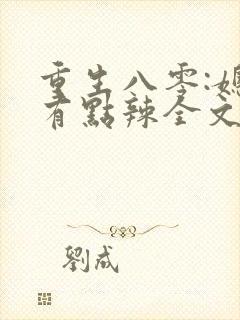 重生八零:媳
有點辣全文
劉成